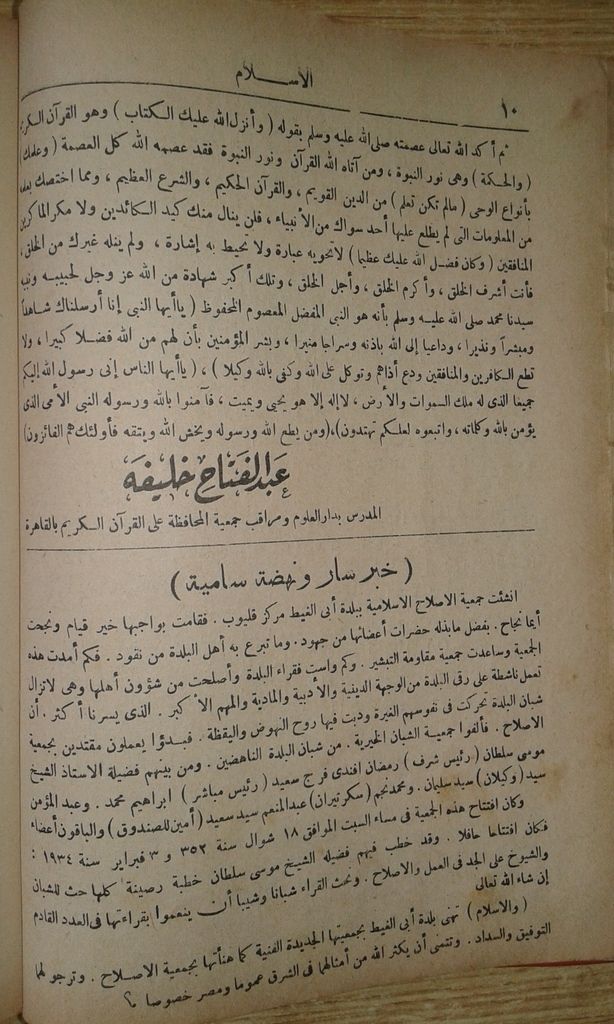 الاسلام
١٠
ثم أكد الله تعالى عصمته صلى الله عليه وسلم بقوله ( وأنزل الله عليك الكتاب ) وهو القرآن
( والحكمة ) وهى نور النبوة ، ومن آتاه الله القرآن ونور النبوة فقد عصمه الله كل العصمة ( وعلمك
بأنواع الوحى ( مالم تكن تعلم ) من الدين القويم ، والقرآن الحكيم ، والشرع العظيم ، ومما اختصك
من المعلومات التى لم يطلع عليها أحد سواك من الأنبياء ، فلن ينال منك كيد الكائدين ولا مكر الماكرين
المنافقين ( وكان فضل الله عليك عظيما ) لاتحويه عبارة ولا تحيط به إشارة ، ولم ينله غيرك من الخلق ،
فأنت أشرف الخلق ، وأكرم الخلق ، وأجل الخلق ، وتلك أكبر شهادة من الله عز وجل لحبيبه
سيدنا محمد صلى الله عليه وسلم بأنه هو النبى المفضل المعصوم المحفوظ ( ياأيها النبى إنا أرسلناك شاهدا
ومبشراً ونذيرا ، وداعيا إلى الله باذنه وسراجا منيرا ، وبشر المؤمنين بأن لهم من الله فضلا كبيرا ، ولا
تطع الكافرين والمنافقين ودع أذاهم وتوكل على الله وكفى بالله وكيلا ) ، ( ياأيها الناس إنى رسول الله إليكم
جميعا الذى له ملك السموات والأرض ، لاإله إلا هو يحيى ويميت ، فآمنوا بالله ورسوله النبى الأمى الذى
يؤمن بالله وكلماته ، واتبعوه لعلكم تهتدون ) ، ( ومن يطع الله ورسوله ويخش الله ويتقه فأولئك هم الفائزون )
عبد الفتاح خليفه
المدرس بدار العلوم ومراقب جمعية المحافظة على القرآن الكريم بالقاهرة
( خبر سار ونهضة سامية )
انشئت جمعية الاصلاح الاسلامية ببلدة أبى الغيط مركز قليوب . فقامت بواجبها خير قيام ونجحت
أيما نجاح . بفضل مابذله حضرات أعضائها من جهود . وما تبرع به أهل البلدة من نقود . فكم أمدت هذه
الجمعية وساعدت جمعية مقاومة التبشير . وكم واست فقراء البلدة وأصلحت من شؤون أهلها وهى لاتزال
تعمل ناشطة على رقى البلدة من الوجهة الدينية والأدبية والمادية والمهم الأكبر . الذى يسرنا أكثر . أن
شبان البلدة تحركت فى نفوسهم الغيرة ودبت فيها روح النهوض واليقظة . فبدؤا يعملون مقتدين بجمعية
الاصلاح . فألفوا جمعية الشبان الخيرية . من شبان البلدة الناهضين . ومن بينهم فضيلة الاستاذ الشيخ
موسى سلطان ( رئيس شرف ) رمضان افندى فرج سعيد ( رئيس مباشر ) ابراهيم محمد . وعبد المؤمن
سيد ( وكيلان ) سيد سليمان . ومحمد نجم ( سكرتيران ) عبد المنعم سيد سعيد ( أمين للصندوق ) والباقون أعضاء
وكان افتتاح هذه الجمعية فى مساء السبت الموافق ١٨ شوال سنة ٣٥٢ و ٣ فبراير سنة ١٩٣٤ :
فكان افتتاحا حافلا . وقد خطب فيهم فضيلة الشيخ موسى سلطان خطبة رصينة كلها حث للشبان
والشيوخ على الجد فى العمل والاصلاح . ونحث القراء شبانا وشيبا أن ينعموا بقراءتها فى العدد القادم
إن شاء الله تعالى
( والاسلام ) تهنى بلدة أبى الغيط بجمعيتها الجديدة الفنية كما هنأتها بجمعية الاصلاح . وترجو لهما
التوفيق والسداد . وتتمنى أن يكثر الله من أمثالهما فى الشرق عموما ومصر خصوصا